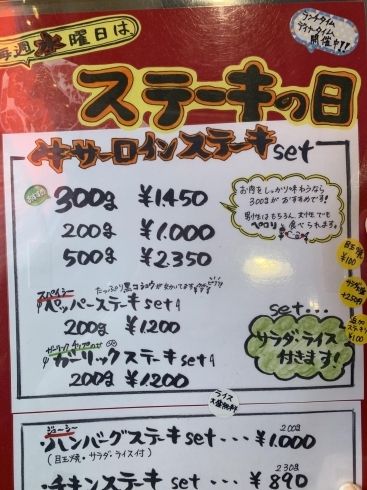 毎週水曜日は
ランチタイム
ディナータイム
開催中!!
ステーキの日
牛サーロインステーキset
おすすめ
300g ¥1.450
200g ¥1.000
500g ¥2.350
お肉をしっかり味わうなら
300gがおすすめです!
男性はもちろん、女性でも
ペロリと食べられます。
目玉焼
¥100
サラダ大盛
+250円
追加
¥100
スパイシー
たっぷり黒コショウが
ペッパーステーキset
200g ¥1.200
ガーリックチップのせ
ガーリックステーキset
200g ¥1.200
set...
サラダ・ライス
付きます!
ライス
大盛無料
ジューシー
・ハンバーグステーキset・・・200g ¥1.000
(目玉焼・サラダ・ライス付)
・チキンステーキset・・・230g ¥890